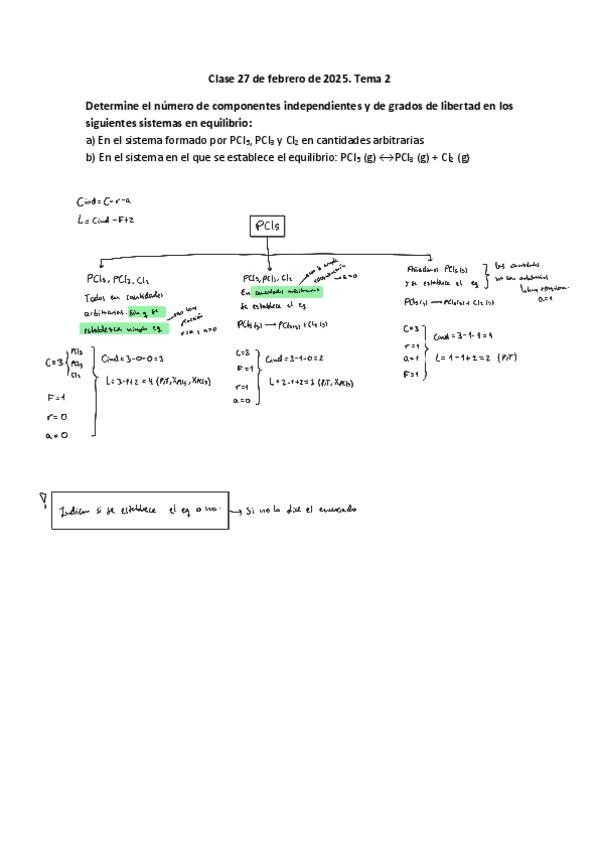 Clase 27 de febrero de 2025. Tema 2
Determine el número de componentes independientes y de grados de libertad en los
siguientes sistemas en equilibrio:
a) En el sistema formado por PCl₅, PCl₃ y Cl₂ en cantidades arbitrarias
b) En el sistema en el que se establece el equilibrio: PCl₅ (g) ↔PCl₃ (g) + Cl₂ (g)
Cind = C-r-a
L = Cind -F+2
PCl₅
PCl₅, PCl₃, Cl₂
Todos en cantidades
arbitrarias. Sin q se
establezca ningún eq
no hay
reacción
r=0 → a=0
C=3 { PCl₅ PCl₃ Cl₂
F=1
r=0
a=0
Cind=3-0-0=3
L= 3-1+2 = 4 (P,T, XPCl₅, XPCl₃)
PCl₅, PCl₃, Cl₂
En cantidades arbitrarias
Se establece el eq
a=0
PCl₅(g) → PCl₃(g) + Cl₂(g)
C=3
F=1
r=1
a=0
Cind=3-1-0=2
L=2-1+2=3 (P,T, XPCl₅)
Añadimos PCl₅(g)
y se establece el eq
las cantidades
no son arbitrarias
a=1
PCl₅(g) → PCl₃(g) + Cl₂(g)
C=3
r=1
a=1
F=1
Cind=3-1-1=1
L= 1-1+2=2 (P,T)
Indicar si se establece el eq o no. → Si no lo dice el enunciado